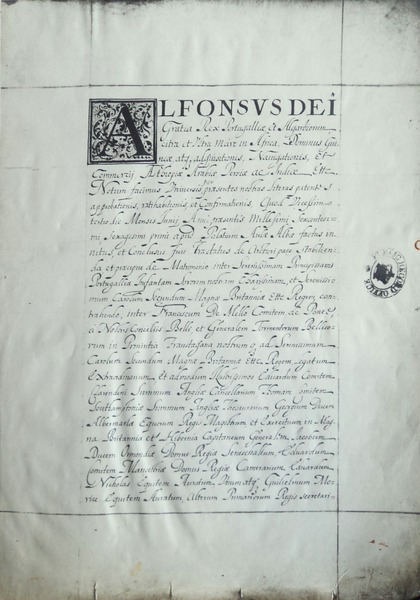 ALFONSVS DEI
Gratia Rex Portugalliæ et Algarbiorum
citra et Vltra Mare in Africa, Dominus Gui
neæ atq, aquisitionis, Nauigationis, Et
Commercij Æthiopiæ Arabiæ Persiæ et Indiæ Etc
Notum facimus Vniuersis præsentes nostras literas patentes
approbationis, ratihabitionis, et Confirmationis. Quod Vicessimo
tertio die Mensis Iunij Anni præsentis Millesimi Sexcentessi
mi Sexagesimi primi apud Palatium Aulæ Albæ factus ini
nitus, et Conclusus fuit Tractatus de
da et præcipue de Matrimonio inter Serenissimam Principissam
Portugalliæ Infantem
mum Carolum Secundum Magnæ Britaniæ Etc Regem, con
trahendo, inter Franciscum De Mello Comitem de Ponte,
a Nostris Consilijs Belli, et Generalem Tormentorum Bellico
rum in Prouintia Transtagana nostrum ad Serenissimum
Carolum Secundum Magnæ Britaniæ Etc Regem Legatum
Extraordinarium, et admodum Illustrissimos Eduardum Comitem
Clarendini Summum Angliæ Cancellarium Thomam Comitem
Southamptoniæ Summum Angliæ Thesaurarium Georgium Ducem
Albermarlæ Equorum Regis Magistrum et Exercituum in Mag
na Britannia et Hibernia Capitaneum Generalem, Iacobum
Ducem Ormondiæ Domus Regiæ Seneschallum, Eduardum
Comitem Manchestriæ Domus Regiæ Camerarium, Eduardum
Nicholas Equitem Auratum Vnum atq, Gulielmum Mor
rice Equitem Auratum Alterum Primariorum Regis Secretari-